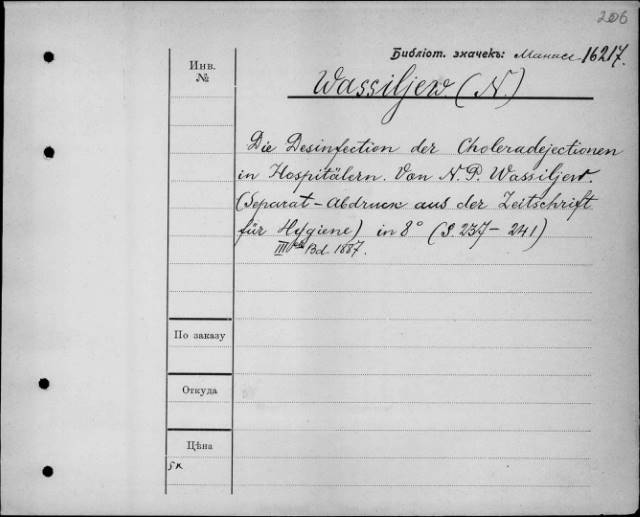 206
Библіот. значекъ: Манасе 16217.
Инв.
№
Wassiljew (N.)
Die Desinfection der Choleradejectionen
in Hospitälern. Von N. P. Wassiljew.
(Separat-Abdruck aus der Zeitschrift
für Hygiene) in 8° (S. 237-241)
III Bd. 1887.
По заказу
Откуда
Цѣна
5к